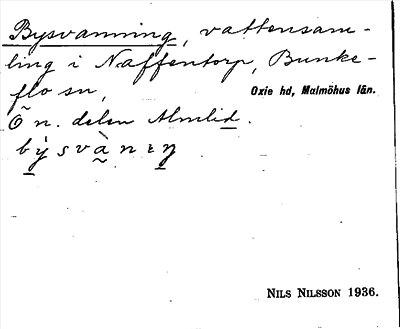 Bysvanning, vattensam-
ling i Naffentorp, Bunke-
flo sn,
Oxie hd, Malmöhus län.
Ö n. delen Almlid.
bỳsvà̰nɩŋ
NILS NILSSON 1936.